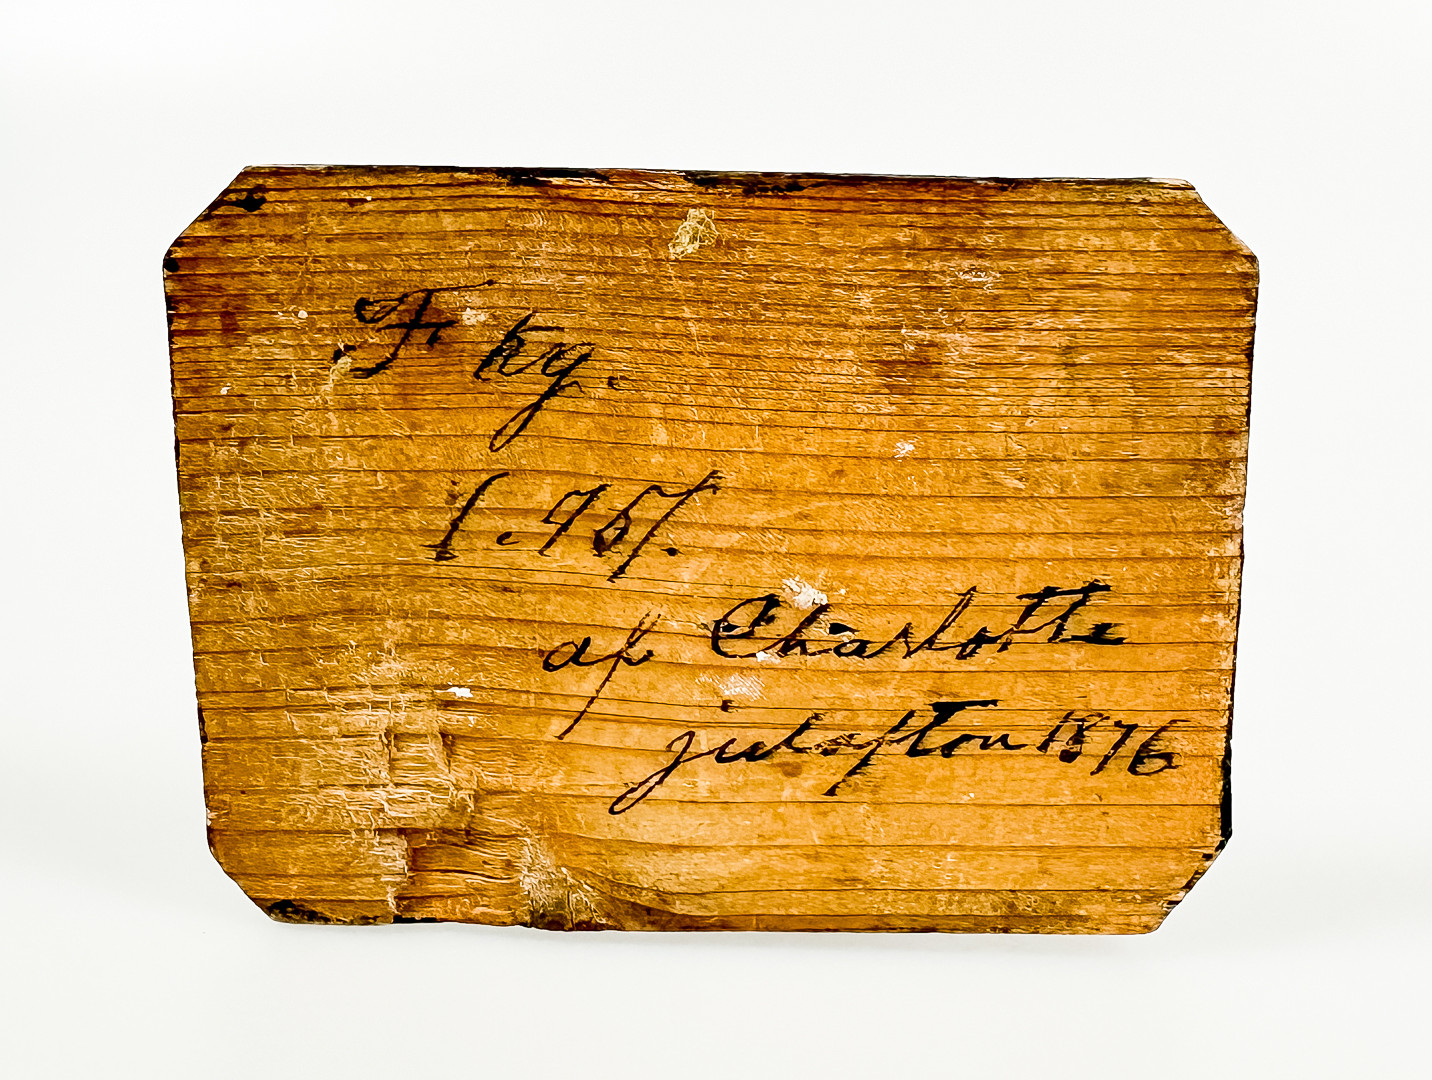 F. Kg.
1.957.
af Charlotte
julafton 1876